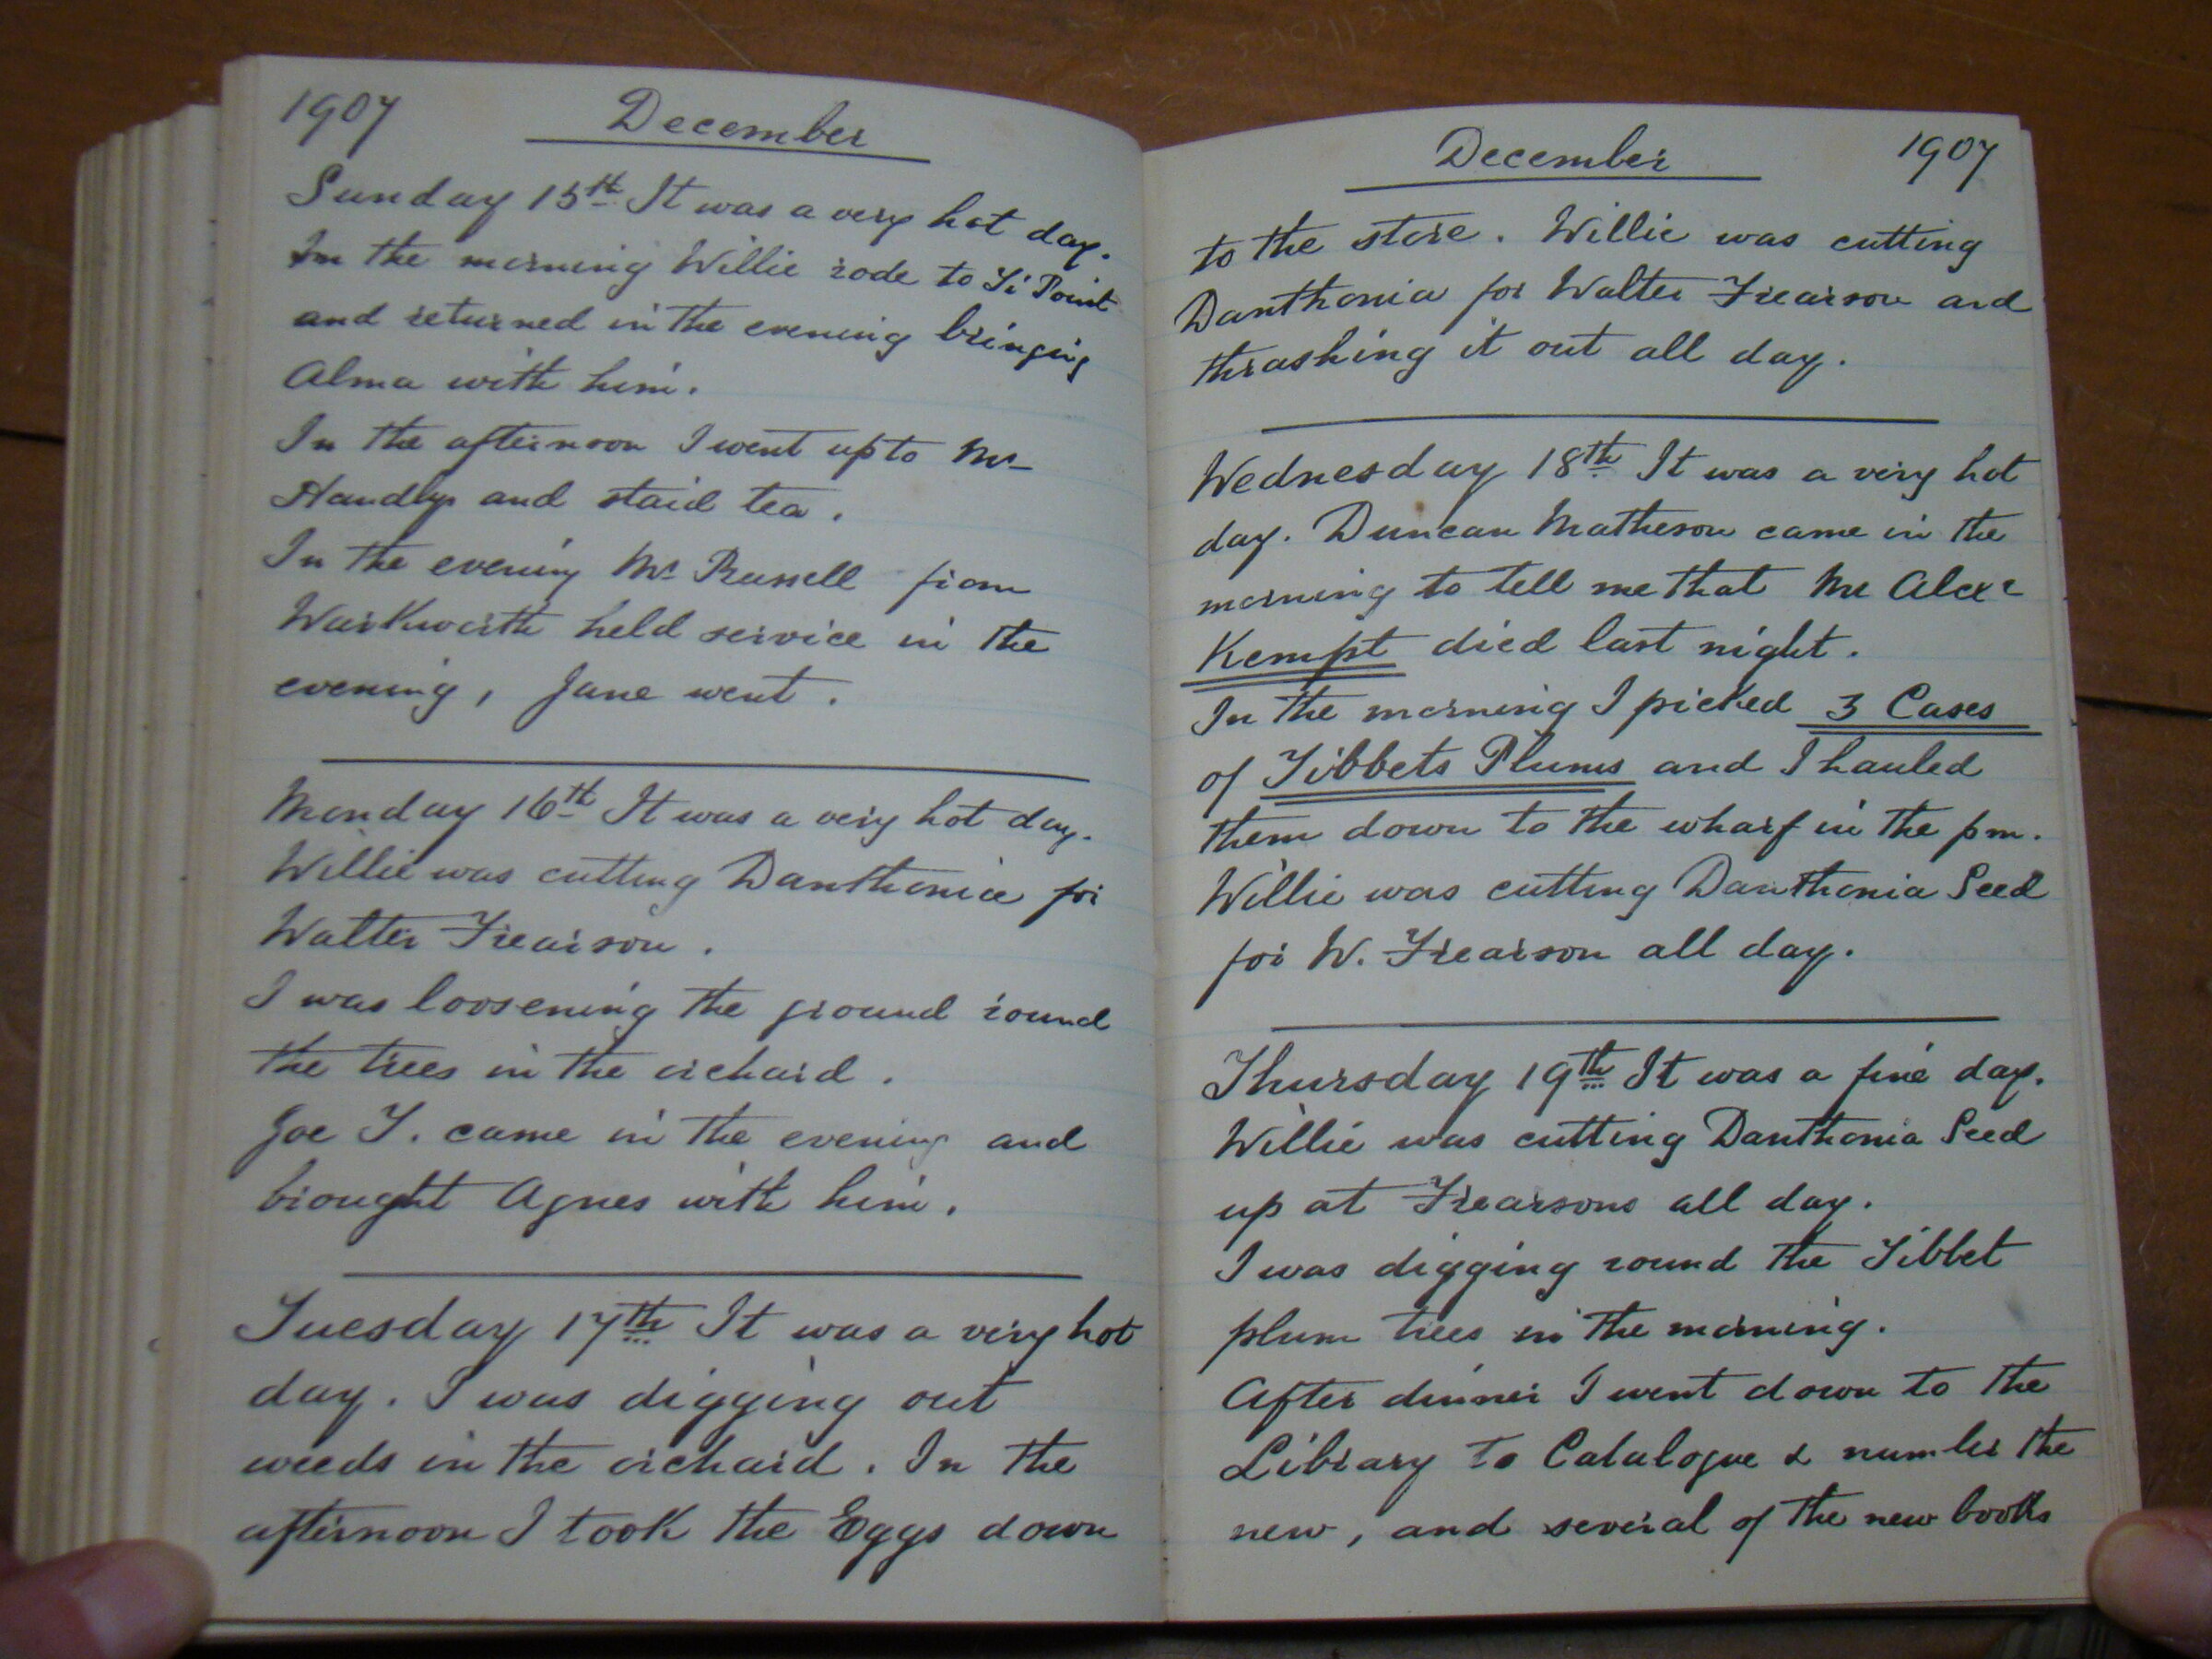 1907 December
Sunday 15th It was a very hot day.
In the morning Willie rode to Ti Point
and returned in the evening bringing
Alma with him.
In the afternoon I went up to Mr
Handlys and staid tea.
In the evening Mr Russell from
Warkworth held service in the
evening, Jane went.
Monday 16th It was a very hot day.
Willie was cutting Danthonia for
Walter Frearson.
I was loosening the ground round
the trees in the orchard.
Joe T. came in the evening and
brought Agnes with him.
Tuesday 17th It was a very hot
day. I was digging out
weeds in the orchard. In the
afternoon I took the Eggs down
December 1907
to the store. Willie was cutting
Danthonia for Walter Frearson and
thrashing it out all day.
Wednesday 18th It was a very hot
day. Duncan Matheson came in the
morning to tell me that Mr Alexr
Kempt died last night.
In the morning I picked 3 Cases
of Tibbets Plums and I hauled
them down to the wharf in the pm.
Willie was cutting Danthonia Seed
for W. Frearson all day.
Thursday 19th It was a fine day.
Willie was cutting Danthonia Seed
up at Frearsons all day.
I was digging round the Tibbet
plum trees in the morning.
After dinner I went down to the
Library to Catalogue & number the
new, and several of the new books